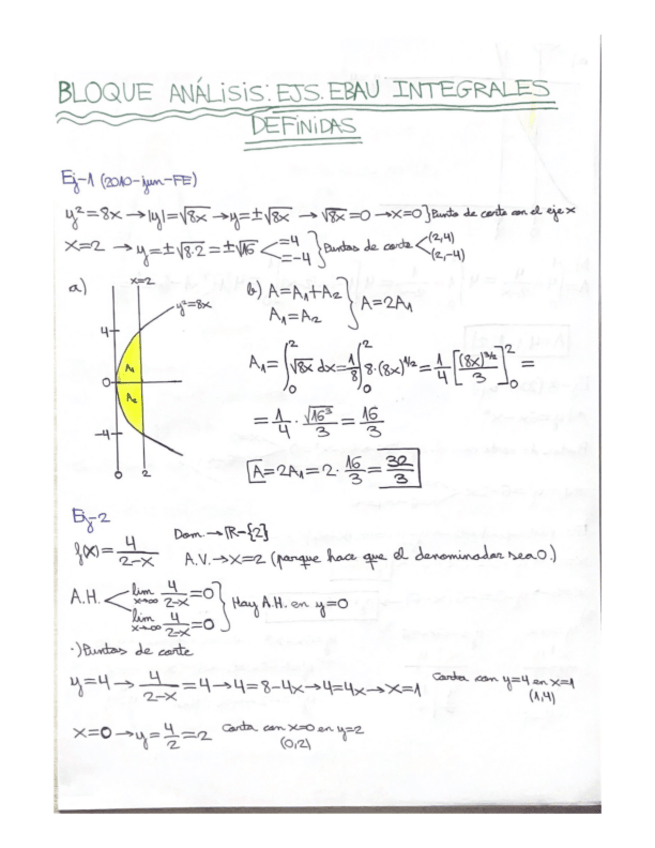 BLOQUE ANÁLISIS: EJS. EBAU INTEGRALES
DEFINIDAS
Ej-1 (2010-jun-FE)
y²=8x → |y|=√8x → y=±√8x → √8x=0 → x=0} Punto de corte con el eje x
x=2 → y=±√8·2=±√16 < =4 =-4 } Puntos de corte < (2,4) (2,-4)
a)
x=2
y²=8x
4
0
-4
A₁
A₂
0
2
b) A=A₁+A₂
A₁=A₂
} A=2A₁
A₁=∫₀² √8x dx=1/8 ∫₀² 8·(8x)^1/2=1/4 [(8x)^3/2 / 3]₀² =
=1/4 · √16³/3 = 16/3
A=2A₁=2·16/3=32/3
Ej-2
f(x)=4/2-x
Dom → R-{2}
A.V. → x=2 (porque hace que el denominador sea 0.)
A.H. < lim x→∞ 4/2-x =0
lim x→-∞ 4/2-x =0
} Hay A.H. en y=0
·) Puntos de corte
y=4 → 4/2-x =4 → 4=8-4x → 4=4x → x=1 Corta con y=4 en x=1
(1,4)
x=0 → y=4/2=2 Corta con x=0 en y=2
(0,2)